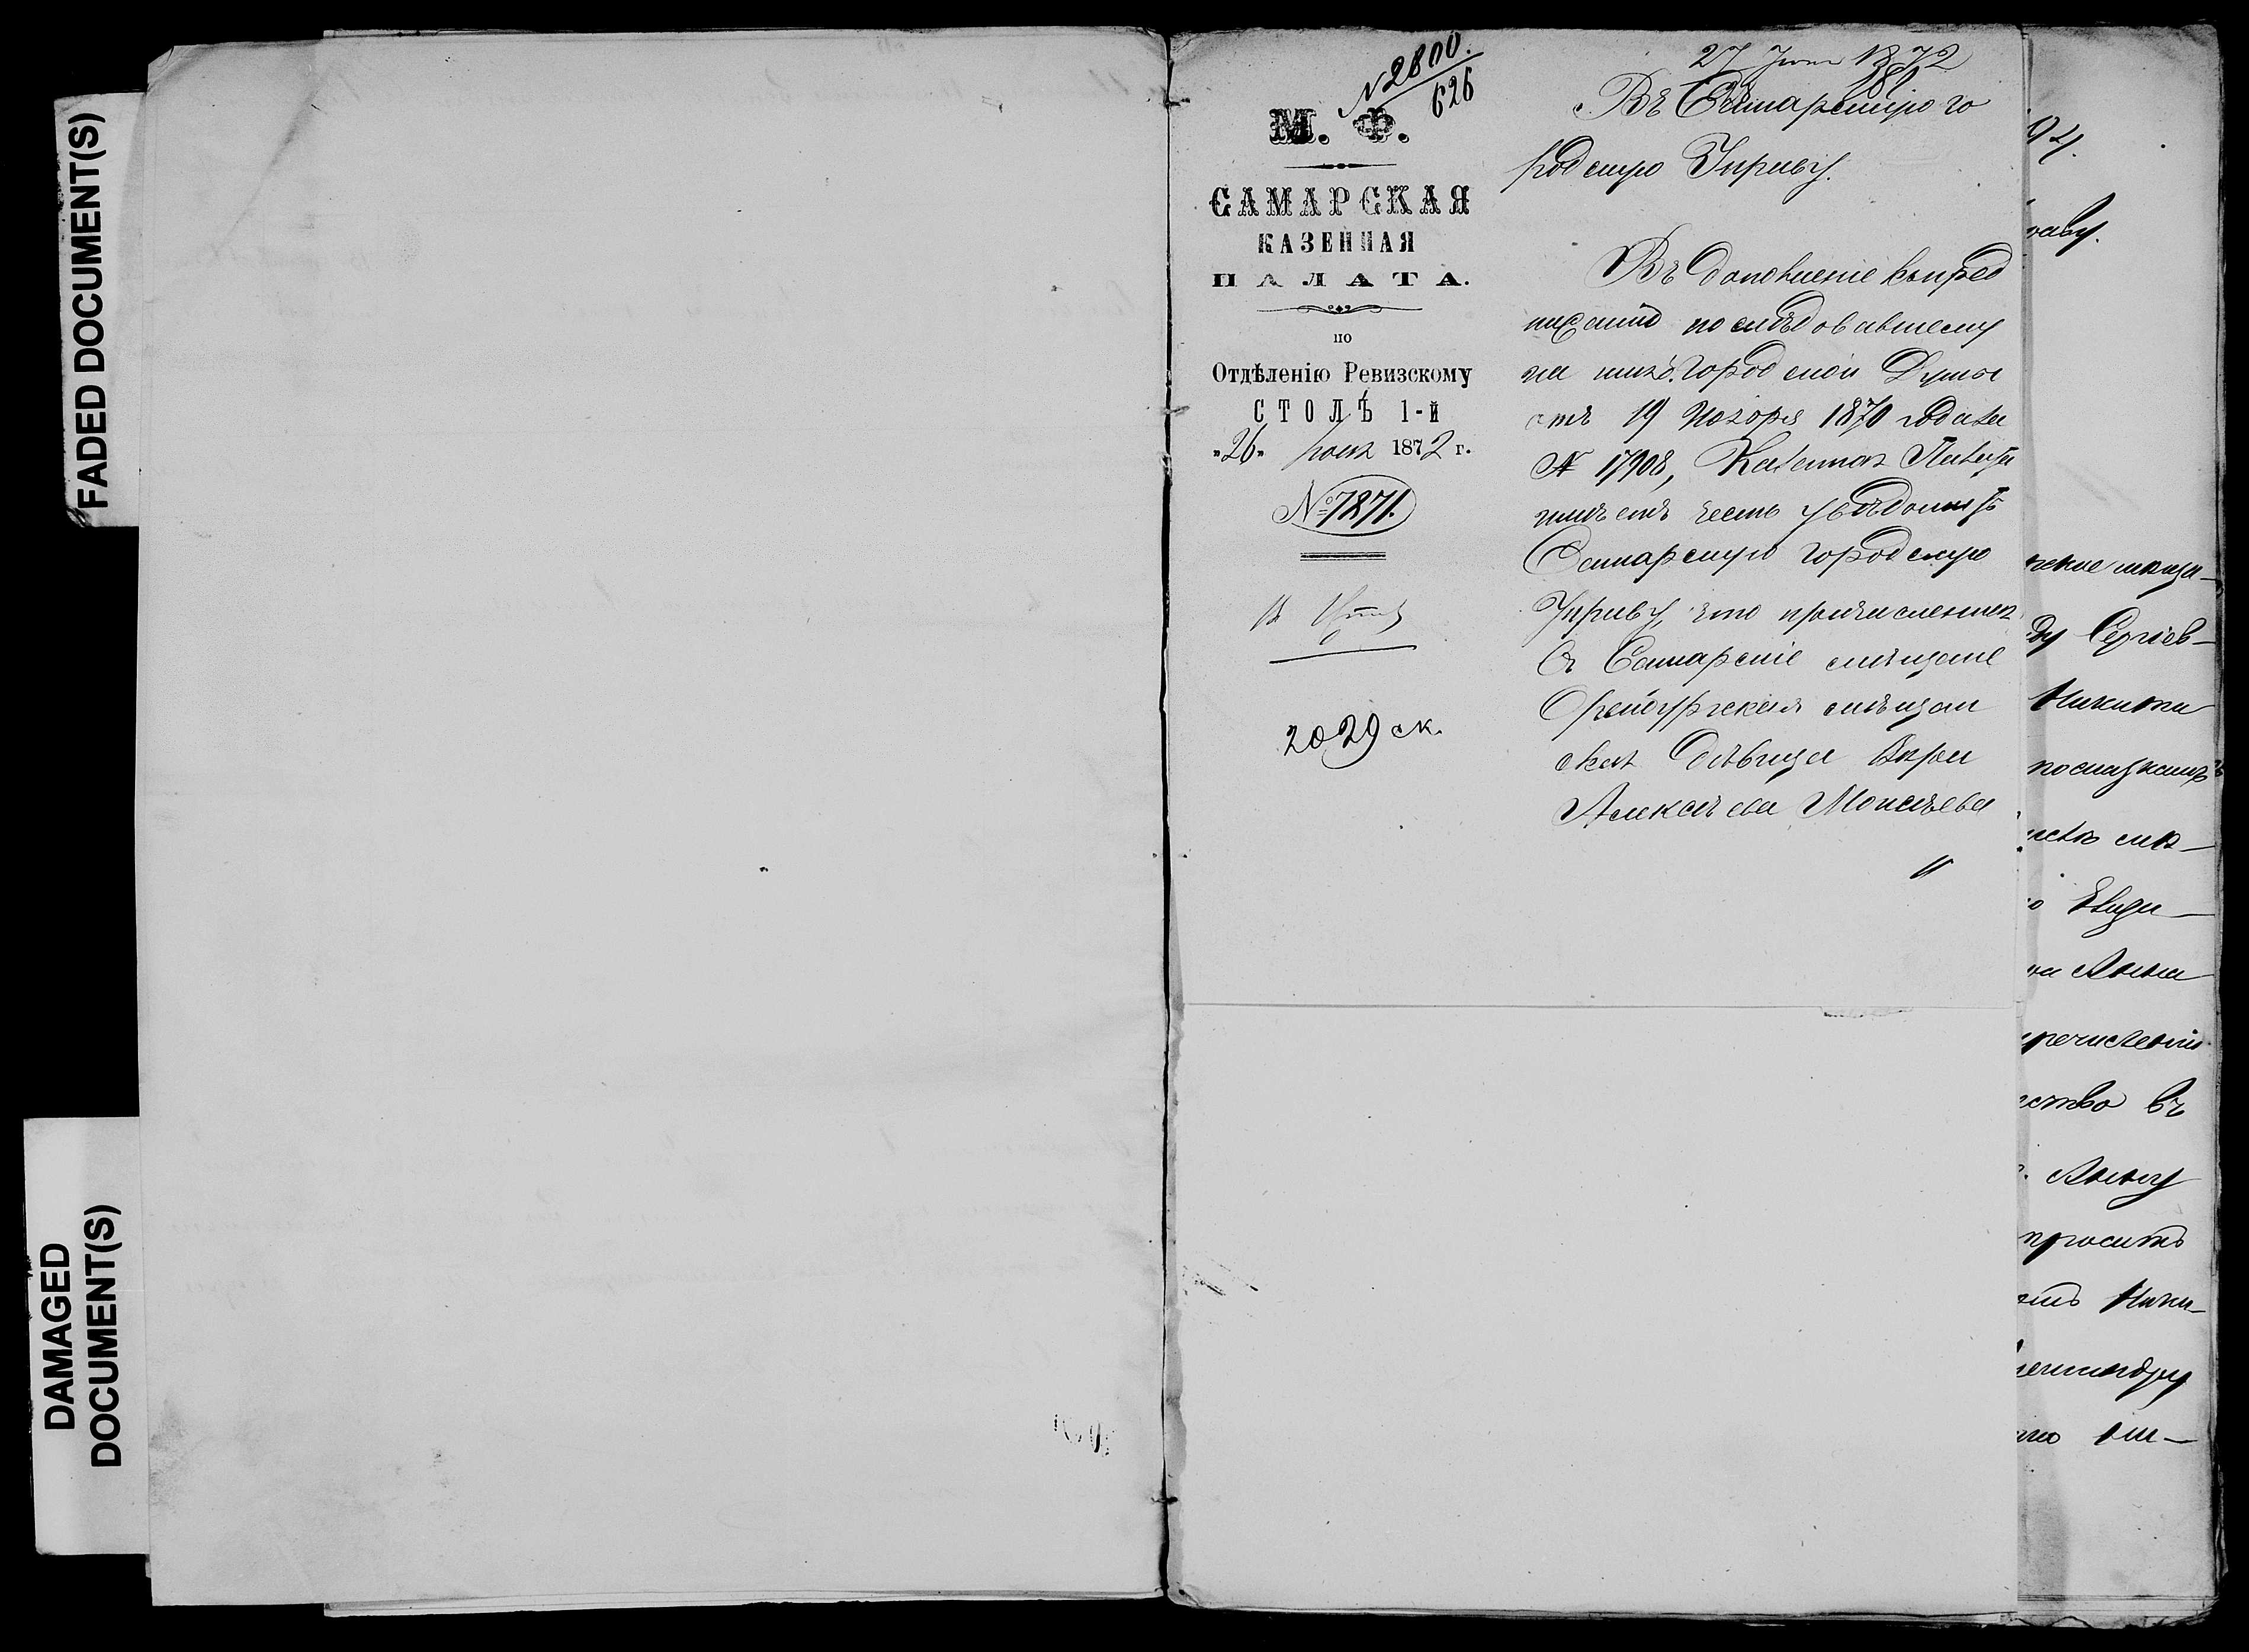 FADED DOCUMENT(S)
DAMAGED
DOCUMENT(S)
N 2800.
626
М. Ф.
САМАРСКАЯ
КАЗЕННАЯ
ПАЛАТА.
по
Отдѣленію Ревизскому
СТОЛЪ 1-й
„26„ Іюня 1872 г.
№ 7871.
2029 ск.
27 Іюня 1872
Въ Самарскую го
родскую Управу.
Въ дополненіе къ пред
писанію послѣдовавшему
на имя Городской Думы
отъ 19 Ноября 1870 года за
№ 17908, Казенная Палата
имѣетъ честь увѣдомить
Самарскую городскую
Управу, что причисленная
въ Самарскіе мѣщане
Оренбургская мѣщан
ская дѣвица
Алексѣева Моисѣева
раву.
Сергіев-
Никита
Анна
перечисленіи
ство въ
Анну
проситъ
Ники-